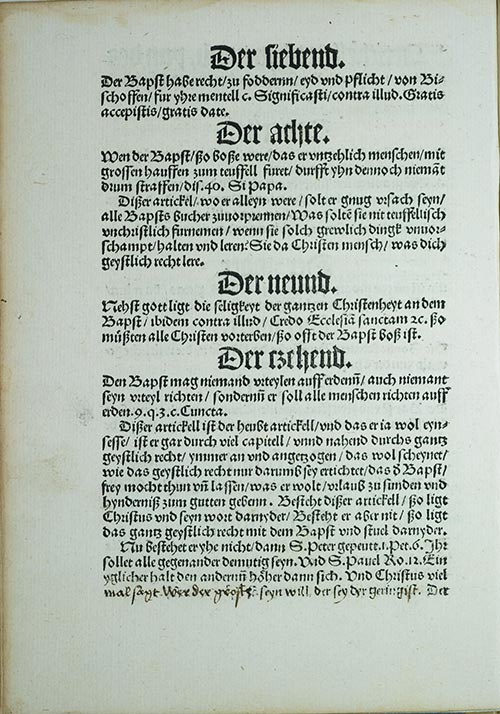 Der siebend.
Der Bapst habe recht/zu foddernn/eyd vnd pflicht/von Bi⸗
schoffen/fur yhre mentell c. Significasti/contra illud. Gratis
accepistis/gratis date.
Der achte.
Wen der Bapst/ßo boße were/das er vntzehlich menschen/mit
grossen hauffen zum teuffell furet/durfft yhn dennoch niemāt
drum straffen/dis. 40. Si Papa.
Dißer artickel/wo er alleyn were/solt er gnug vrsach seyn/
alle Bapsts bucher zuuorprennen/Was soltē sie nit teuffelisch
vnchristlich furnemen/wenn sie solch grewlich dingk vnuor⸗
schampt/halten vnd leren? Sie da Christen mensch/was dich
geystlich recht lere.
Der neund.
Nehst gott ligt die seligkeyt der gantzen Christenheyt an dem
Bapst/ibidem contra illud/Credo Ecclesiā sanctam ꝛc. ßo
mußten alle Christen vorterben/ßo offt der Bapst boß ist.
Der tzehend.
Den Bapst mag niemand vrteylen auff erdenn/auch niemant
seyn vrteyl richten/sondernn er soll alle menschen richten auff
erden. 9. q. 3. c. Cuncta.
Dißer artickell ist der heubt artickell/vnd das er ia wol eyn⸗
sesse/ist er gar durch viel capitell/vnnd nahend durchs gantz
geystlich recht/ymmer an vnd angetzogen/das wol scheynet/
wie das geystlich recht nur darumb sey ertichtet/das d̓ Bapst/
frey mocht thun vn̄ lassen/was er wolt/vrlaub zu sunden vnd
hynderniß zum gutten gebenn. Besteht dißer artickell/ßo ligt
Christus vnd seyn wort darnyder/Besteht er aber nit/ßo ligt
das gantz geystlich recht mit dem Bapst vnd stuel darnyder.
Nu bestehet er yhe nicht/dann S. Peter gepeutt. 1. Pet. 6. Ihr
sollet alle gegenander demutig seyn. Vnd S. Pauel Ro. 12. Ein
yglicher halt den andernn höher dann sich. Vnd Christus viel
mal sagt. Wer der größt seyn will, der sey der geringist. Der